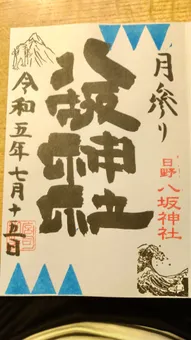 月参り
日野 八坂神社
八坂神社
令和五年七月十五日